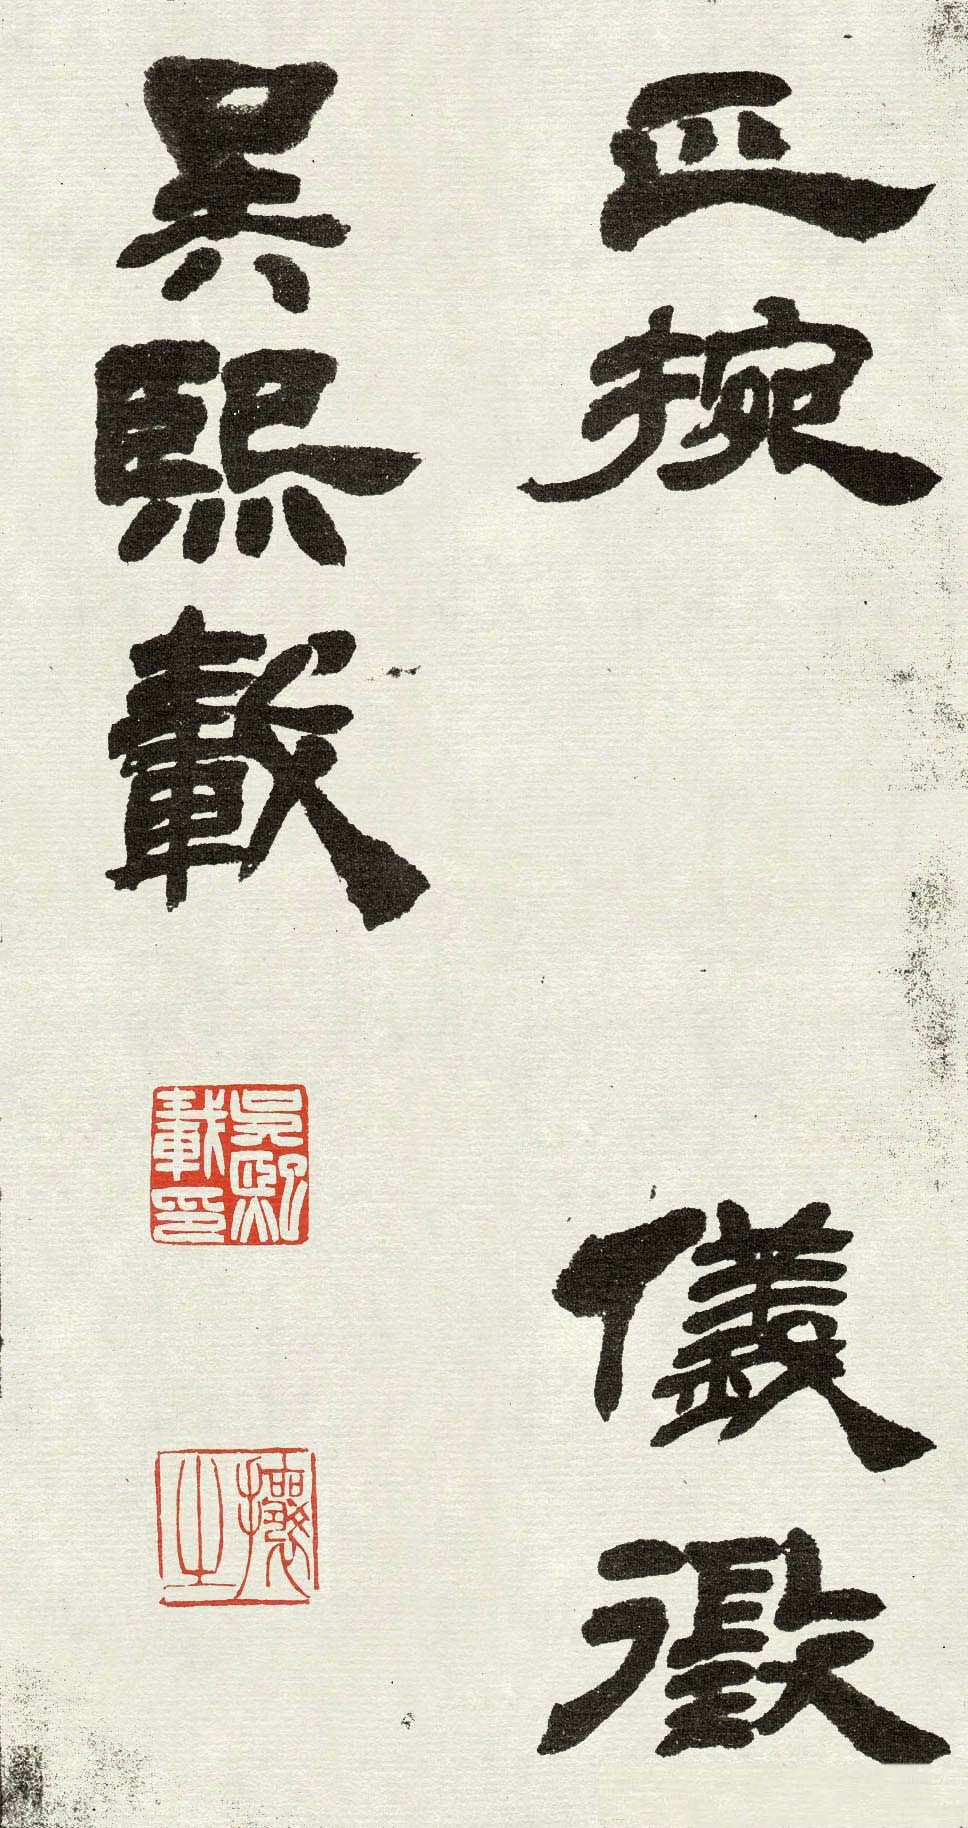 正捥
儀徵
吳熙載
吳熙載印
攘之